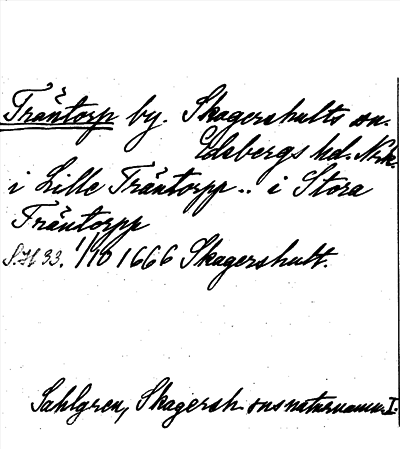 Träntorp by. Skagershults sn.
Edsbergs hd. Nrk.
i Lille Träntorpp .. i Stora
Träntorpp
S.H 33. 1/10 1666 Skagershult.
Sahlgren, Skagersh. sns naturnamn I.